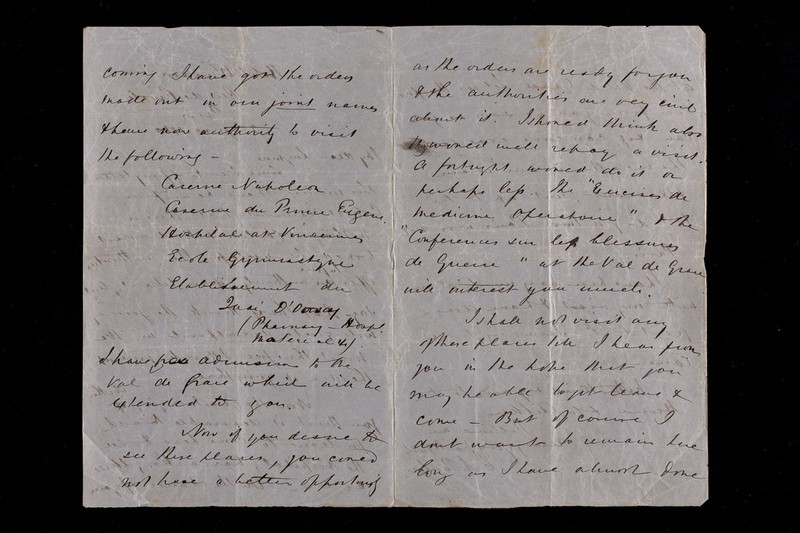 coming I have got the orders
made out in our joint names
& have now authority to visit
the following -
Caserne Napoleon
Caserne du Prince Eugene.
Hospital at Vincennes
Ecole Gymnastique
Etablissement du
Quai D'Orsay
(Pharmacy - Hospl
Material &c)
I have free admission to the
Val de Grace which will be
extended to you.
Now if you desire to
see these places, you could
not have a better opportunity
as the orders are ready for you
& the authorities are very civil
about it. I should think also
would well repay a visit.
A fortnight would do it or
perhaps less. The "Exercises de
Medicine Operatoire" & the
"Conferences sur les blessures
de Guerre" at the Val de Grace
will interest you much.
I shall not visit any
of these places till I hear from
you in the hope that you
may be able to get leave &
come - But of course I
dont want to remain here
long as I have almost done